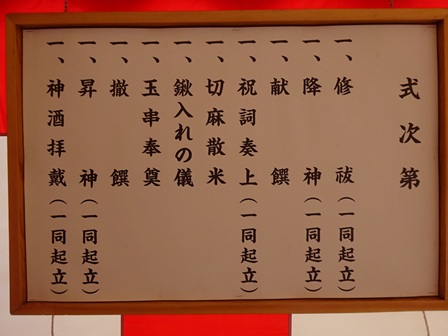 式次第
一、修祓（一同起立）
一、降神（一同起立）
一、献饌
一、祝詞奏上（一同起立）
一、切麻散米
一、鍬入れの儀
一、玉串奉奠
一、撤饌
一、昇神（一同起立）
一、神酒拝戴（一同起立）